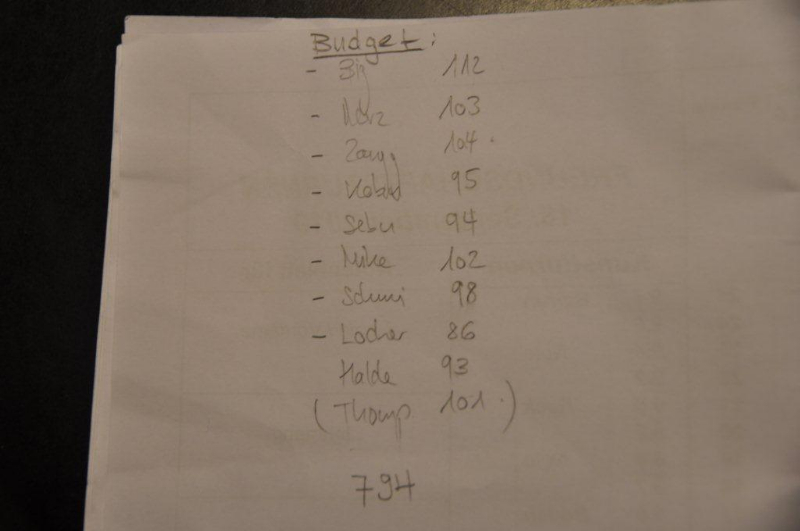 Budget:
- 112
- März 103
- Zaugg 104
- 95
- Sebu 94
- Mike 102
- 98
- Locher 86
Halde 93
(Thomp. 101.)
794